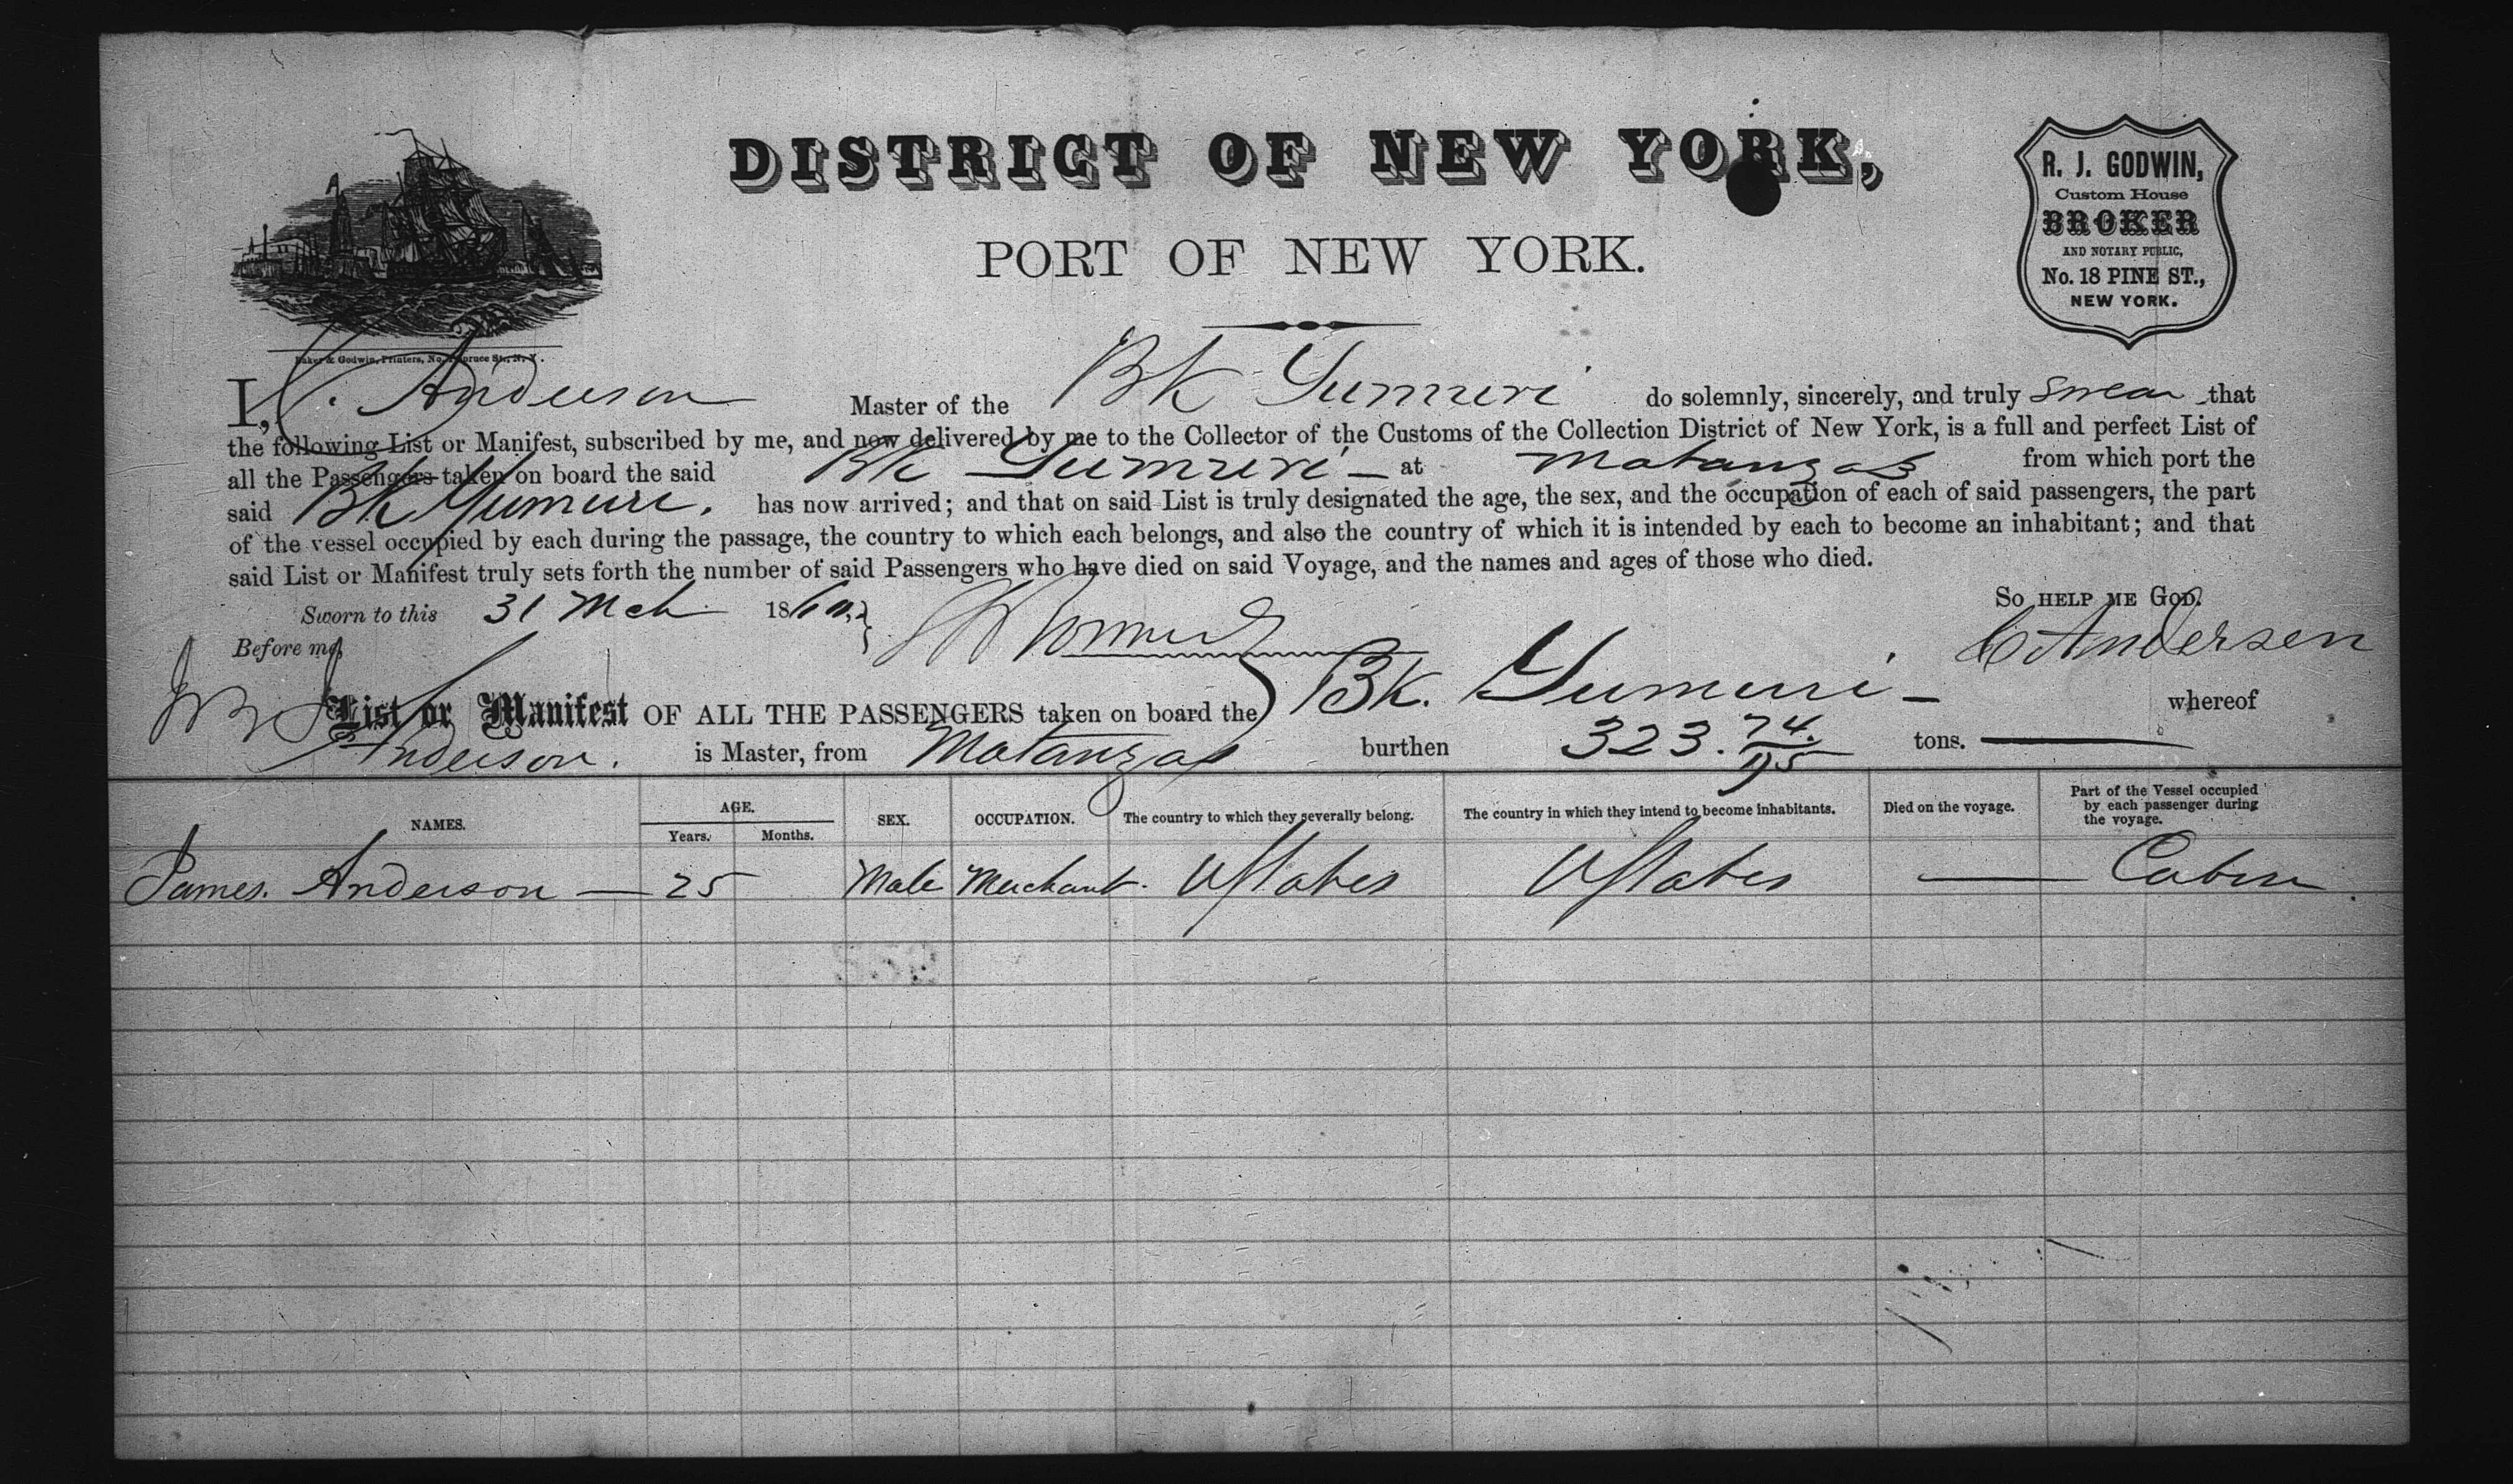 DISTRICT OF NEW YORK,
PORT OF NEW YORK.
R. J. GODWIN,
Custom House
BROKER
AND NOTARY PUBLIC,
No. 18 PINE ST.,
NEW YORK.
Baker & Godwin, Printers, No. 1 Spruce St., N. Y.
I, C. Anderson Master of the Bk Yumuri do solemnly, sincerely, and truly swear that
the following List or Manifest, subscribed by me, and now delivered by me to the Collector of the Customs of the Collection District of New York, is a full and perfect List of
all the Passengers taken on board the said Bk Yumuri at Matanzas from which port the
said Bk Yumuri. has now arrived; and that on said List is truly designated the age, the sex, and the occupation of each of said passengers, the part
of the vessel occupied by each during the passage, the country to which each belongs, and also the country of which it is intended by each to become an inhabitant; and that
said List or Manifest truly sets forth the number of said Passengers who have died on said Voyage, and the names and ages of those who died.
Sworn to this 31 Mch 1860. So HELP ME GOD.
Before me, C Andersen
List or Manifest OF ALL THE PASSENGERS taken on board the Bk. Yumuri - whereof
Anderson. is Master, from Matanzas burthen 323. 74/95 tons.
NAMES. AGE. SEX. OCCUPATION. The country to which they severally belong. The country in which they intend to become inhabitants. Died on the voyage. Part of the Vessel occupied by each passenger during the voyage.
Years. Months.
James. Anderson — 25 Male Merchant. UStates UStates — Cabin